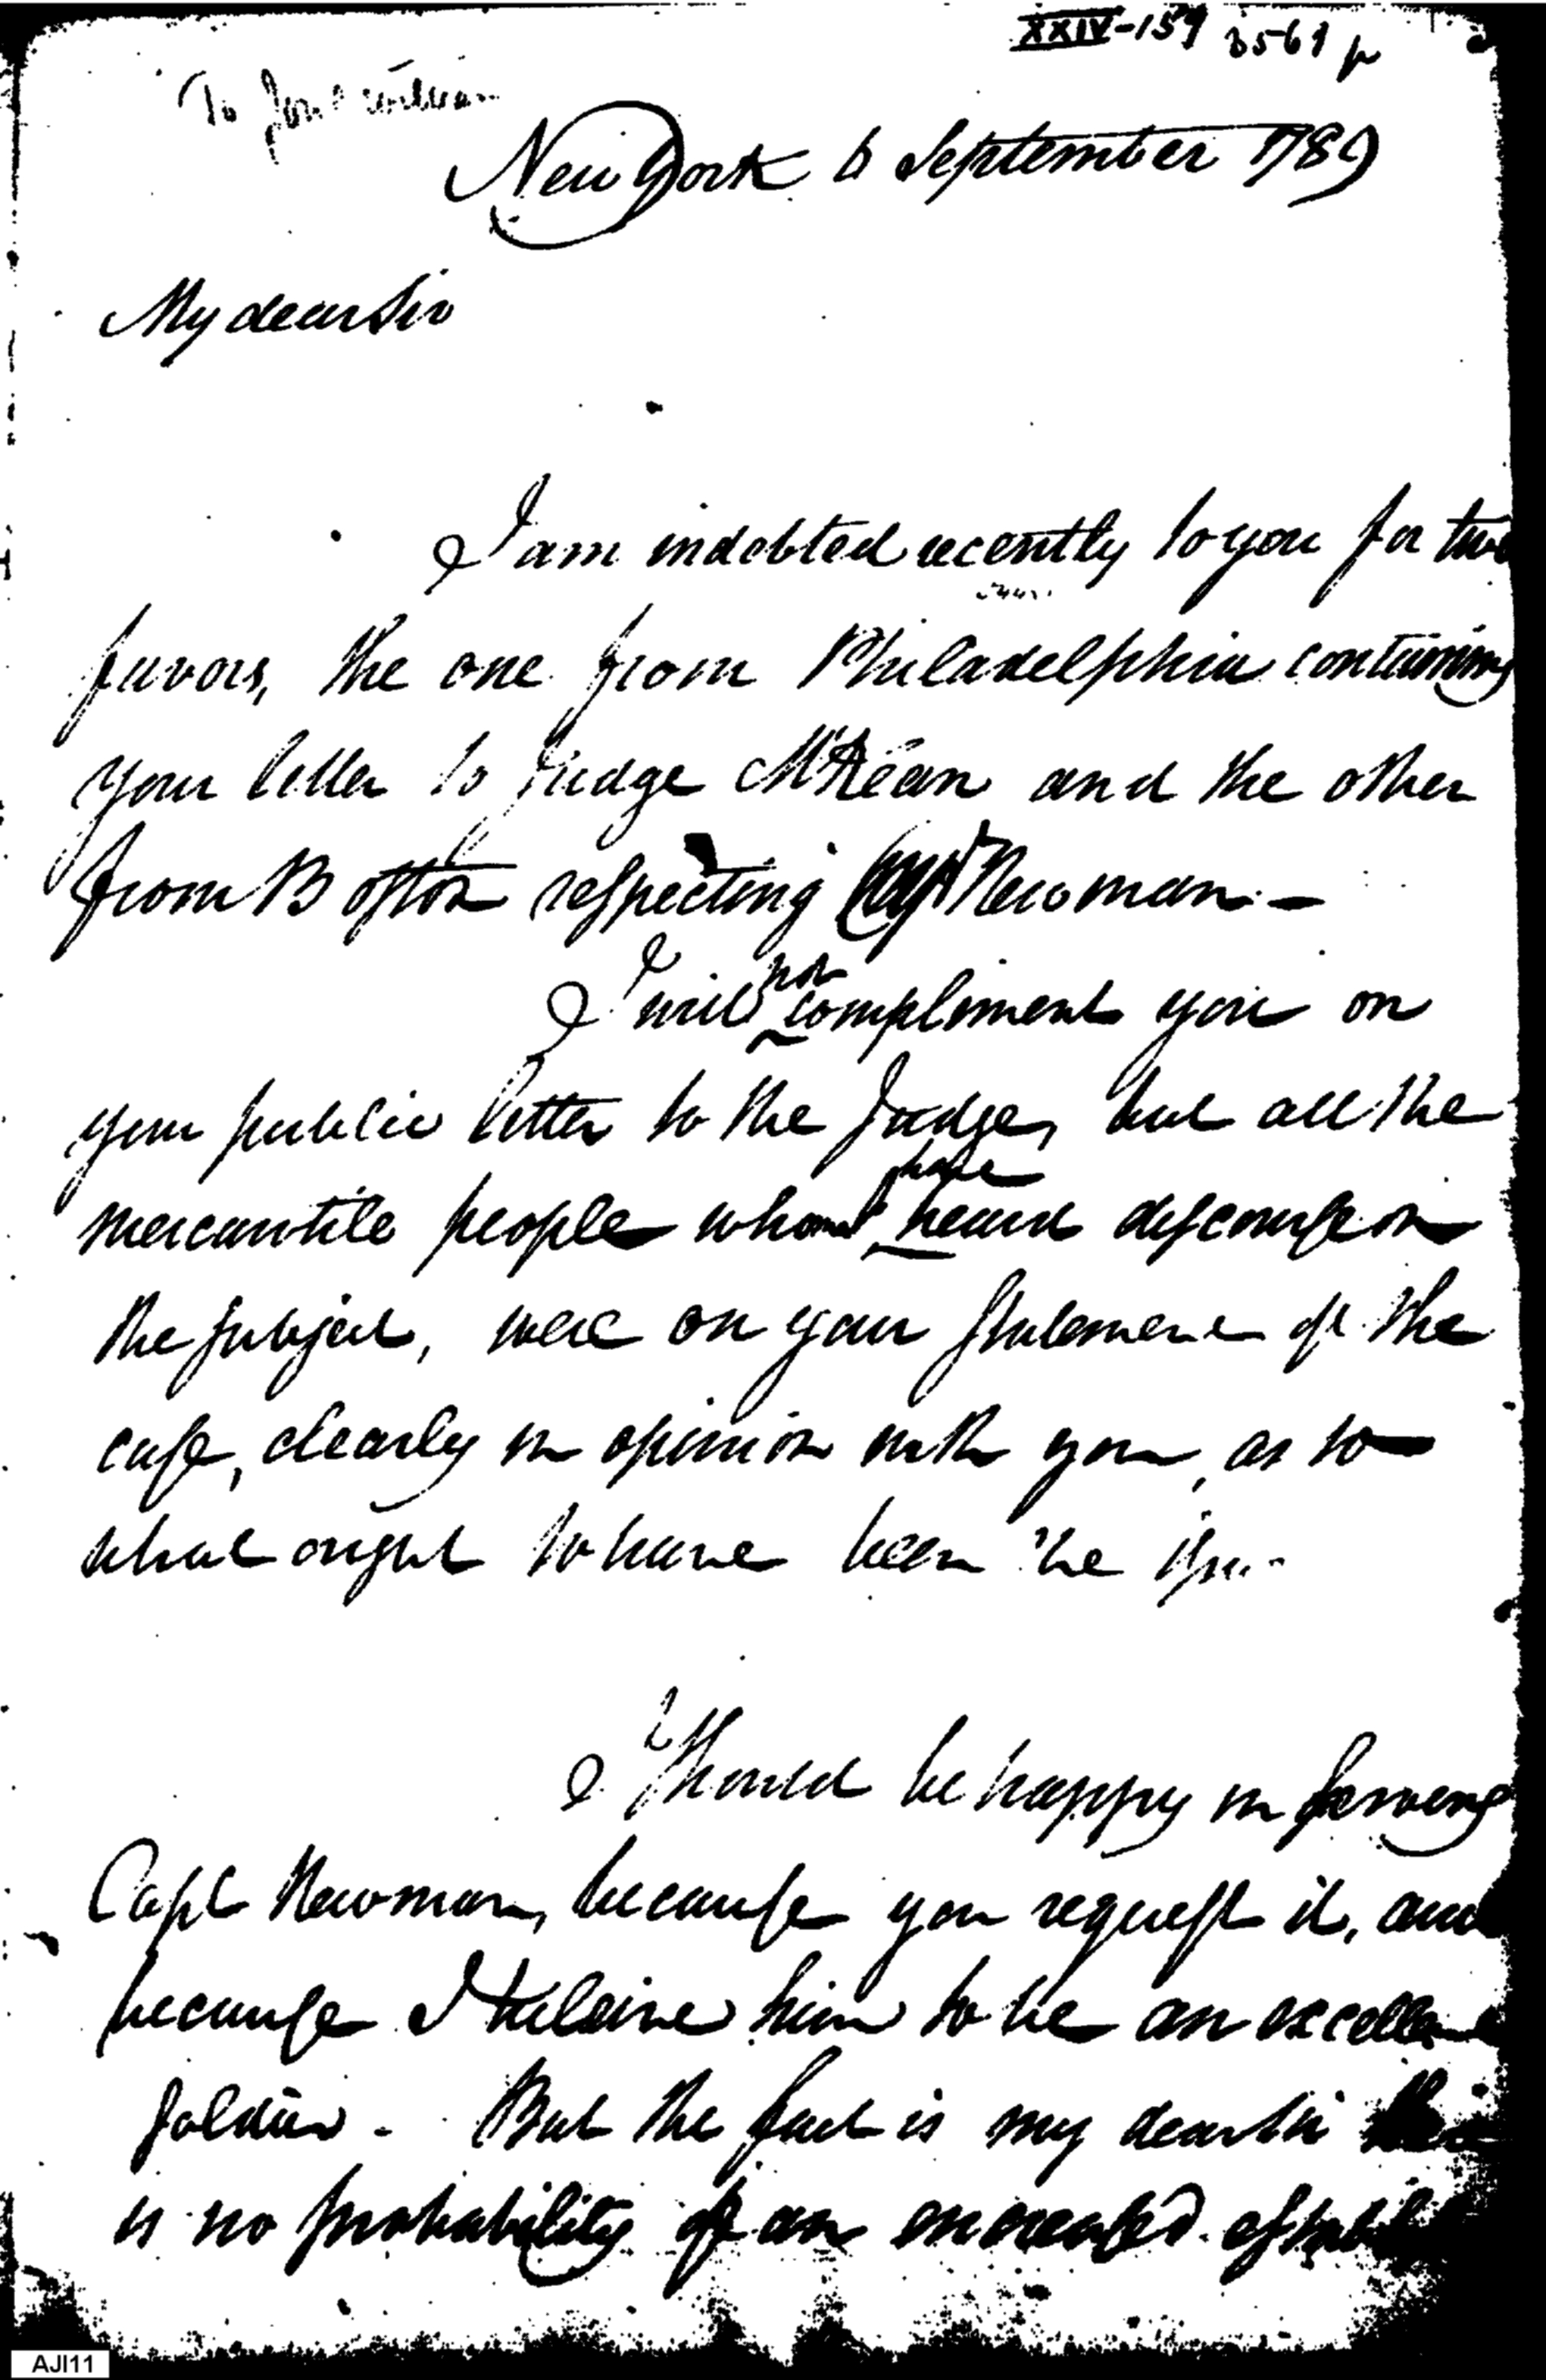 XXIV-159 3561 p
To
New York 6 September 1789
My dear Sir
I am indebted recently to you for two
favors, the one from Philadelphia containing
your letter to Judge McKean and the other
from Boston respecting Capt Newman. —
I will not compliment you on
your public letter to the Judge, but all the
mercantile people whom I have heard discourse on
the subject, were on your statement of the
case, clearly in opinion with you, as to
what ought to have been the
I should be happy in serving
Capt Newman, because you request it, and
because I believe him to be an excellent
soldier. But the fact is my dear Sir
is no probability of an encreased
AJI11